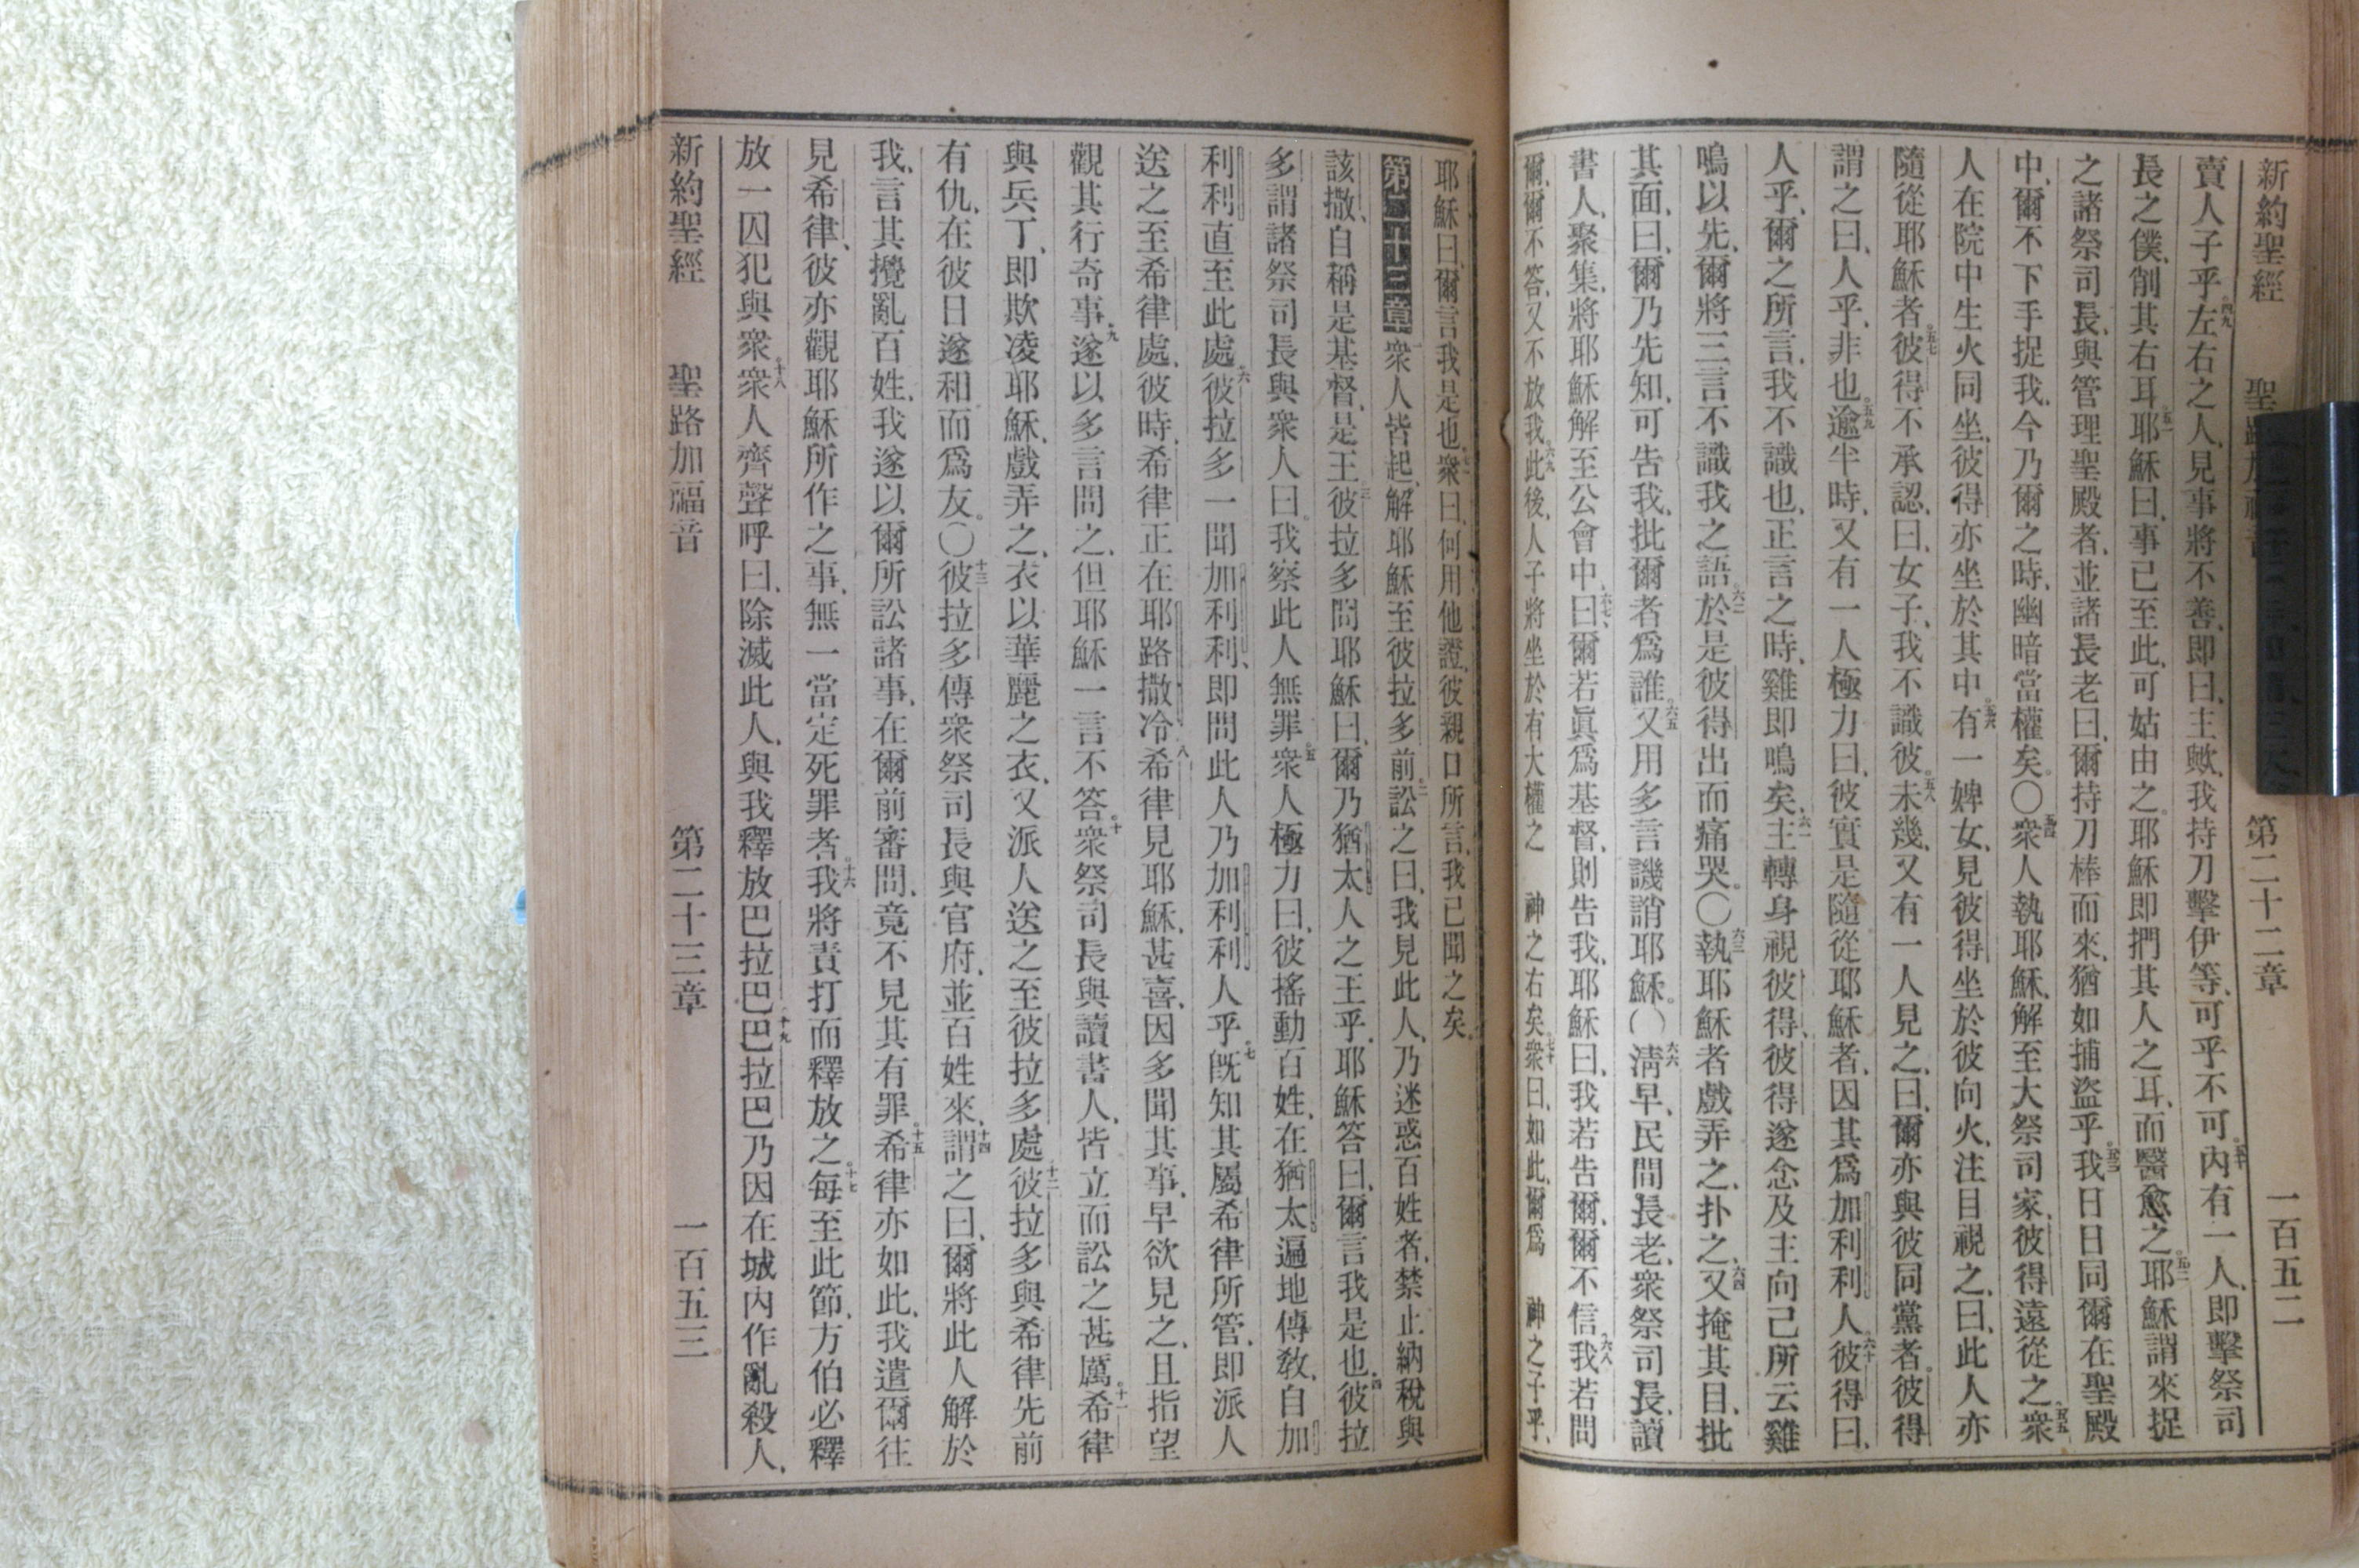 新約聖經 第二十二章 一百五二
賣人子乎。四九左右之人、見事將不善、即曰、主歟、我持刀擊伊等、可乎不可。五十內有一人、即擊祭司
長之僕、削其右耳。五一耶穌曰、事已至此、可姑由之。耶穌即捫其人之耳、而醫愈之。五二耶穌謂來捉
之諸祭司長、與管理聖殿者、並諸長老曰、爾持刀棒而來、猶如捕盜乎。五三我日日同爾在聖殿
中、爾不下手捉我、今乃爾之時、幽暗當權矣。〇五四眾人執耶穌、解至大祭司家、彼得遠從之。五五眾
人在院中生火同坐、彼得亦坐於其中。五六有一婢女、見彼得坐於彼向火、注目視之、曰、此人亦
隨從耶穌者。五七彼得不承認、曰、女子、我不識彼。五八未幾、又有一人見之、曰、爾亦與彼同黨者。彼得
謂之曰、人乎、非也。五九逾半時、又有一人極力曰、彼實是隨從耶穌者、因其爲加利利人。六十彼得曰、
人乎、爾之所言、我不識也、正言之時、雞即鳴矣。六一主轉身視彼得、彼得遂念及主向己所云雞
鳴以先、爾將三言不識我之語。六二於是彼得出而痛哭。〇六三執耶穌者戲弄之、扑之、六四又掩其目、批
其面、曰、爾乃先知、可告我、批爾者爲誰。六五又用多言譏誚耶穌。〇六六淸早、民間長老、衆祭司長、讀
書人、聚集、將耶穌解至公會中、六七曰、爾若眞爲基督、則告我、耶穌曰、我若告爾、爾不信、六八我若問
爾、爾不答、又不放我。六九此後、人子將坐於有大權之 神之右矣。七十衆曰、如此、爾爲 神之子乎、
耶穌曰、爾言我是也。七一衆曰、何用他證、彼親口所言、我已聞之矣。
第二十三章 一衆人皆起、解耶穌至彼拉多前。二訟之曰、我見此人、乃迷惑百姓者、禁止納稅與
該撒、自稱是基督、是王。三彼拉多問耶穌曰、爾乃猶太人之王乎、耶穌答曰、爾言我是也。四彼拉
多謂諸祭司長與衆人曰。我察此人無罪。五衆人極力曰、彼搖動百姓、在猶太遍地傳教、自加
利利直至此處。六彼拉多一聞加利利、即問此人乃加利利人乎。七旣知其屬希律所管、即派人
送之至希律處、彼時、希律正在耶路撒冷。八希律見耶穌、甚喜、因多聞其事、早欲見之、且指望
觀其行奇事。九遂以多言問之、但耶穌一言不答。十衆祭司長與讀書人、皆立而訟之甚厲。十一希律
與兵丁、即欺凌耶穌、戲弄之、衣以華麗之衣、又派人送之至彼拉多處。十二彼拉多與希律先前
有仇、在彼日遂和而爲友。〇十三彼拉多傳衆祭司長與官府、並百姓來、十四謂之曰、爾將此人解於
我、言其攪亂百姓、我遂以爾所訟諸事、在爾前審問、竟不見其有罪。十五希律亦如此、我遣爾往
見希律、彼亦觀耶穌所作之事、無一當定死罪者。十六我將責打而釋放之。十七每至此節、方伯必釋
放一囚犯與衆。十八衆人齊聲呼曰、除滅此人、與我釋放巴拉巴。十九巴拉巴乃因在城內作亂殺人、
新約聖經 聖路加福音 第二十三章 一百五三